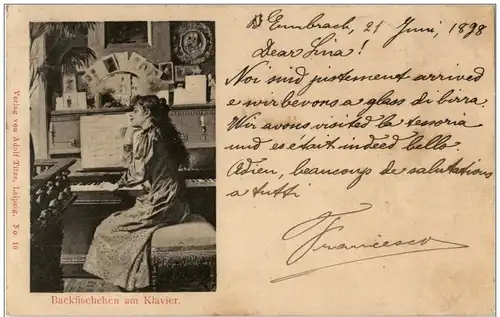 Ennbrach, 21 Juni, 1898
Dear Lina!
Noi sind justement arrived
e wir bevons a glass di birra.
Wir avons visited la tessoria
und es etait indeed bello.
Adien, beaucoup de salutations
a tutti
Francesco
Verlag von Adolf Titze, Leipzig. No. 10
Backfischchen am Klavier.